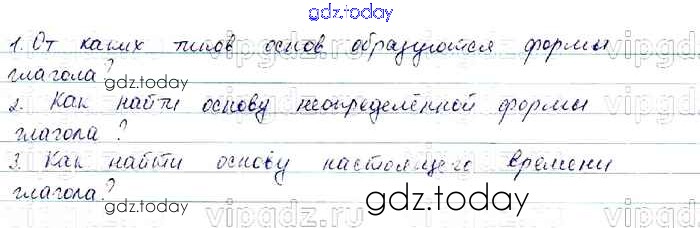 gdz.today
1. От каких типов основ образуются формы
глагола?
gdz.today
2. Как найти основу неопределённой формы
глагола?
3. Как найти основу настоящего времени
глагола?
gdz.today
gdz.today
vipgdz.ru